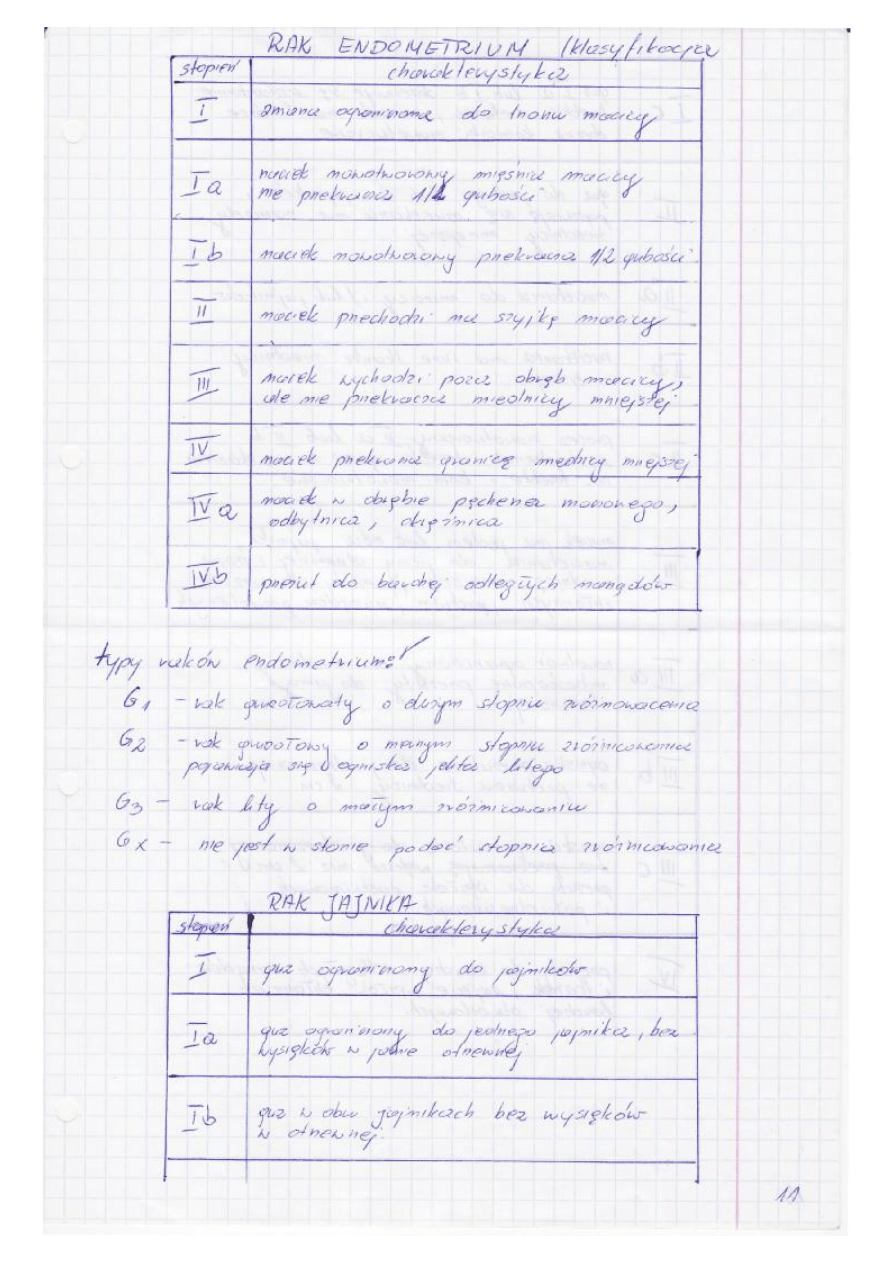 RAK ENDOMETRIUM (klasyfikacja
stopień charakterystyka
I zmiana ograniczona do trzonu macicy
Ia naciek nowotworowy mięśnia macicy
nie przekracza 1/2 grubości
Ib naciek nowotworowy przekracza 1/2 grubości
II naciek przechodzi na szyjkę macicy
III naciek wychodzi poza obręb macicy,
ale nie przekracza miednicy mniejszej
IV naciek przekracza granicę miednicy mniejszej
IVa naciek w obrębie pęcherza moczowego,
odbytnica, okrężnica
IVb przerzut do bardziej odległych narządów
typy raków endometrium:
G1 – rak gruczołowaty o dużym stopniu zróżnicowania
G2 – rak gruczołowy o miernym stopniu zróżnicowania
pojawiają się ogniska litego
G3 – rak lity o małym zróżnicowaniu
Gx – nie jest w stanie podać stopnia zróżnicowania
RAK JAJNIKA
stopień charakterystyka
I guz ograniczony do jajników
Ia guz ograniczony do jednego jajnika, bez
wysięków w jamie otrzewnej
Ib guz w obu jajnikach bez wysięków
w otrzewnej.
11